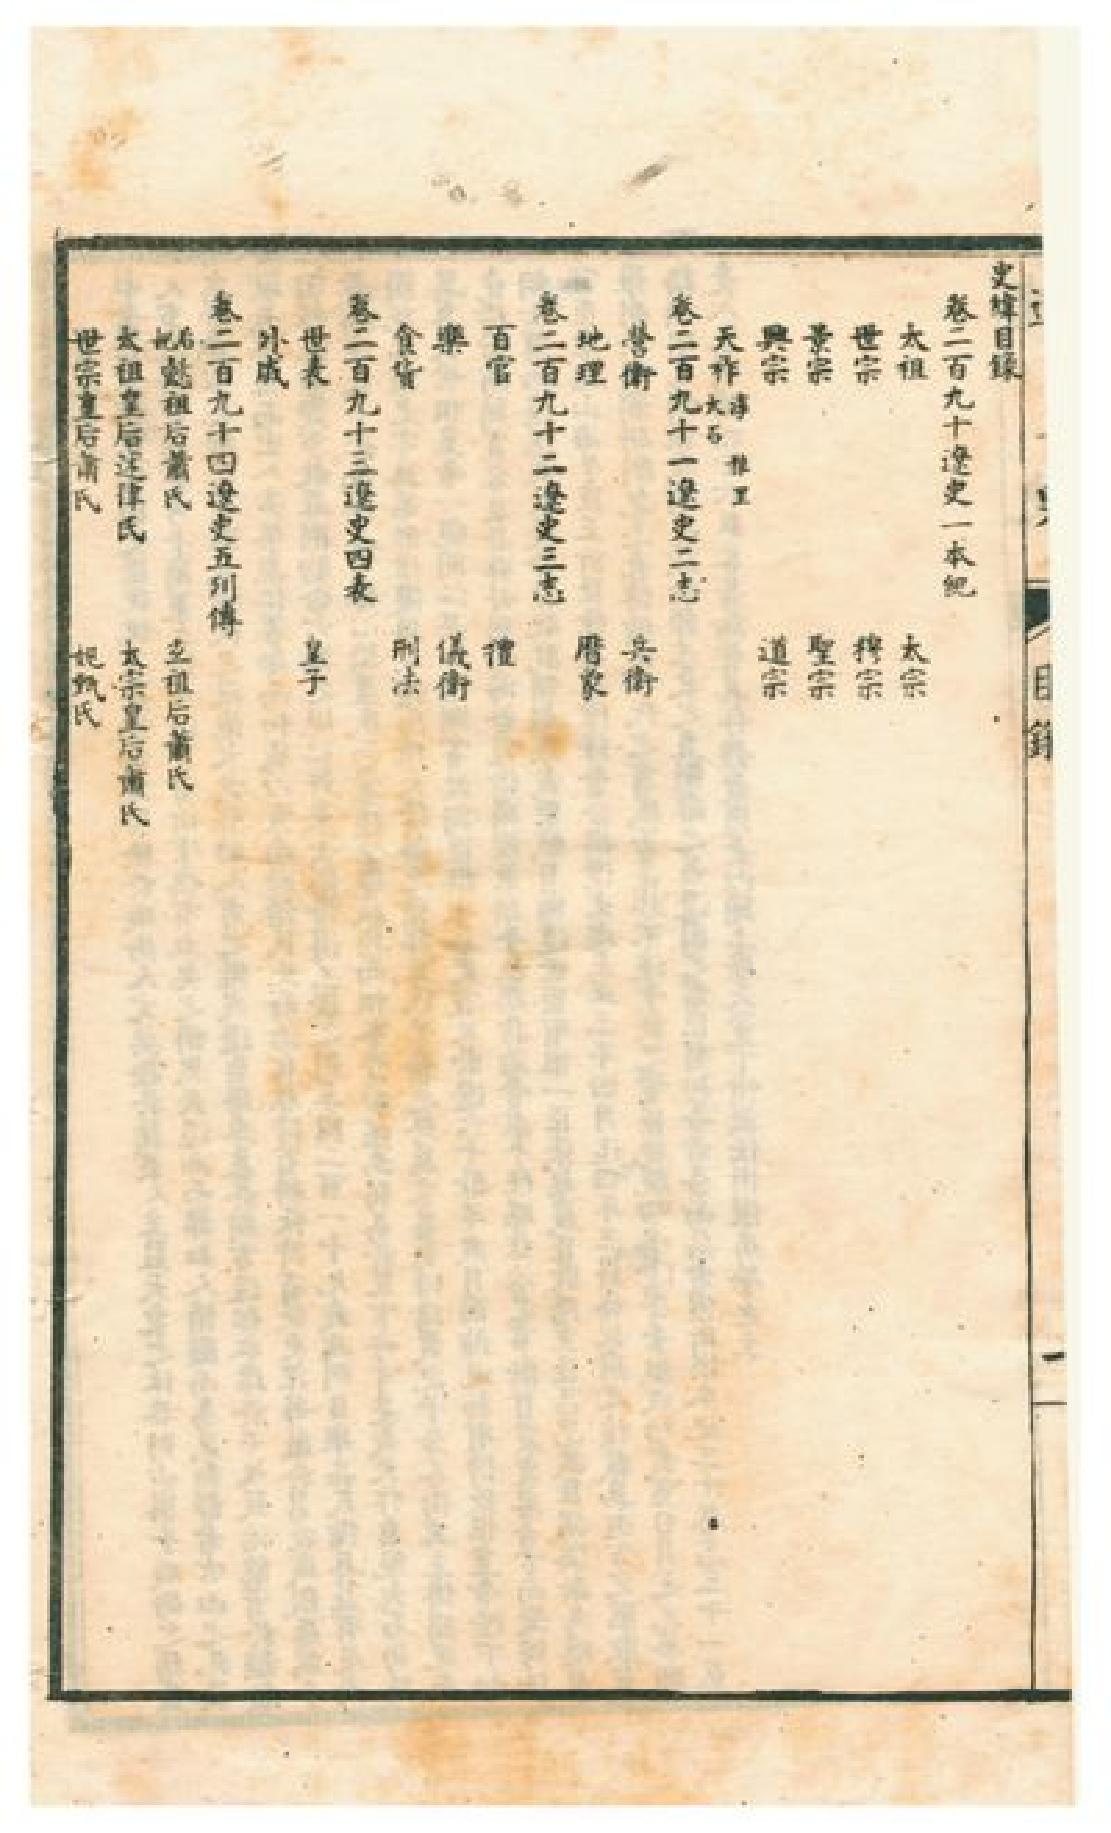 史緯目錄
卷二百九十遼史一本紀
太祖 太宗
世宗 穆宗
景宗 聖宗
興宗 道宗
天祚 淳 雅里 大石
卷二百九十一遼史二志
營衛 兵衛
地理 曆象
卷二百九十二遼史三志
百官 禮
樂 儀衛
食貨 刑法
卷二百九十三遼史四表
世表 皇子
外戚
卷二百九十四遼史五列傳
后妃 懿祖后蕭氏 玄祖后蕭氏
太祖皇后述律氏 太宗皇后蕭氏
世宗皇后蕭氏 妃甄氏
目錄
一